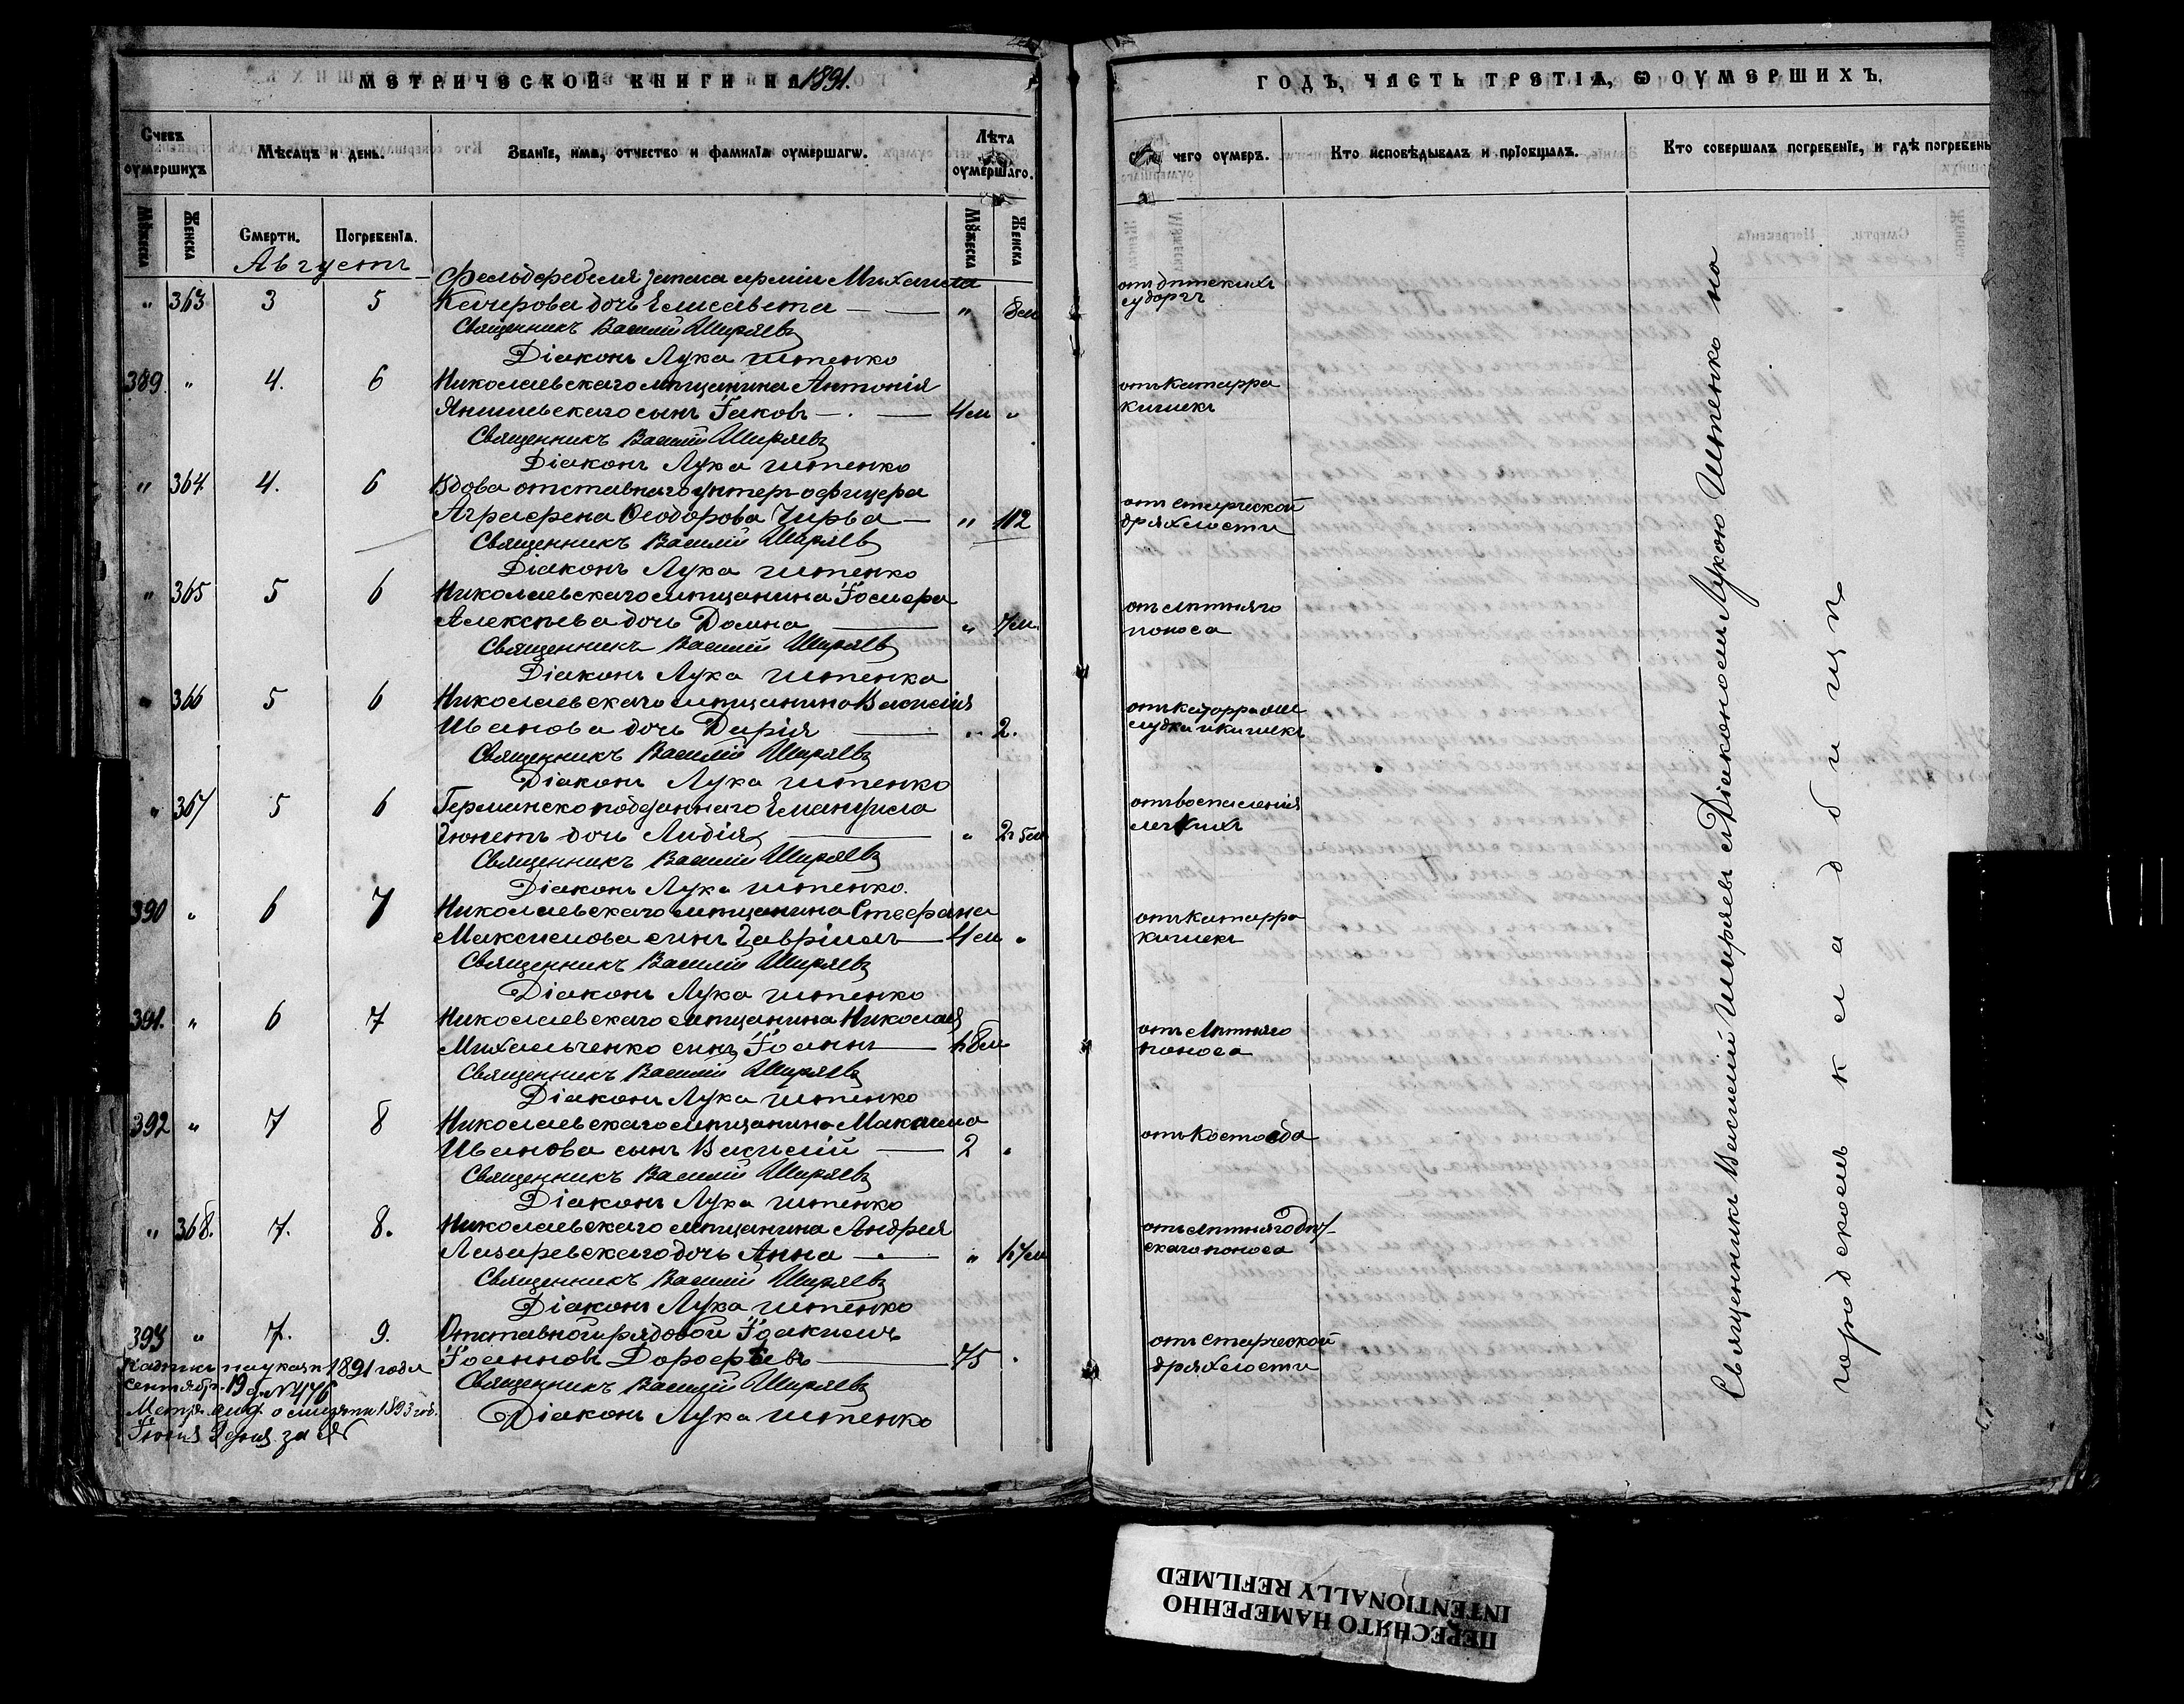 МЕТРИЧЕСКОЙ КНИГИ НА 1891.
Счевъ оумершихъ
Мѣсяцъ и день.
Званїе, имя, отчество и фамилїя оумершагѡ.
Лѣта оумершаго.
Мꙋжеска
Женска
Смерти.
Погребенїя.
Мꙋжеска
Женска
Августъ
Фельдфебеля запаса арміи Михаила
" 363 3 5 дочь Елисавета — " 8 м
Священникъ Василій Ширяевъ
Діаконъ Лука Штенко
389. " 4. 6 Николаевскаго мѣщанина Антонія
сынъ Іаковъ — 4 м "
Священникъ Василій Ширяевъ
Діаконъ Лука Штенко
" 364 4. 6 Вдова отставнаго унтеръ-офицера
Агрипина Ѳеодорова Чирва — " 112
Священникъ Василій Ширяевъ
Діаконъ Лука Штенко
" 365 5 6 Николаевскаго мѣщанина Іосифа
Алексѣева дочь Домна — " 7 м.
Священникъ Василій Ширяевъ
Діаконъ Лука Штенко
" 366 5 6 Николаевскаго мѣщанина Василія
Иванова дочь Дарія — " 2.
Священникъ Василій Ширяевъ
Діаконъ Лука Штенко
" 367 5 6 Германско подданнаго Емануила
дочь Лидія — " 2 г 5 м
Священникъ Василій Ширяевъ
Діаконъ Лука Штенко.
390 " 6 7 Николаевскаго мѣщанина Стефана
Максимова сынъ Гавріилъ — 4 м "
Священникъ Василій Ширяевъ
Діаконъ Лука Штенко
391. " 6 7 Николаевскаго мѣщанина Николая
Михальченко сынъ Іоаннъ — 1 г 8 м
Священникъ Василій Ширяевъ
Діаконъ Лука Штенко
392 " 7 8 Николаевскаго мѣщанина Максима
Иванова сынъ Василій — 2 "
Священникъ Василій Ширяевъ
Діаконъ Лука Штенко
" 368. 7. 8. Николаевскаго мѣщанина Андрея
Лазаревскаго дочь Анна — " 1 г 7 м
Священникъ Василій Ширяевъ
Діаконъ Лука Штенко
393 " 7. 9. Отставной рядовой Іоакимъ
Іоанновъ Дорофѣевъ — 75 "
Священникъ Василій Ширяевъ
Діаконъ Лука Штенко
1891 года
сентябр. 19 д. № 476
Метр. выд. о смерти 1893 год.
Іюня 2 дня за №
ГОДЪ, ЧАСТЬ ТРЕТІЯ, Ѡ ОУМЕРШИХЪ.
чего оумеръ.
Кто исповѣдывалъ и прїобщалъ.
Кто совершалъ погребенїе, и гдѣ погребены
отъ дѣтскихъ
судоргъ
отъ катарра
кишекъ
отъ старческой
дряхлости
отъ лѣтняго
поноса
отъ катарра же
лудка и кишекъ
отъ воспаленія
легкихъ
отъ катарра
кишекъ
отъ лѣтняго
поноса
отъ костоѣда
отъ лѣтняго дѣт-
скаго поноса
отъ старческой
дряхлости
Священникъ Василій Ширяевъ съ Діакономъ Лукою Штенко на
городскомъ кладбищѣ
ПЕРЕСНЯТО НАМЕРЕННО
INTENTIONALLY REFILMED